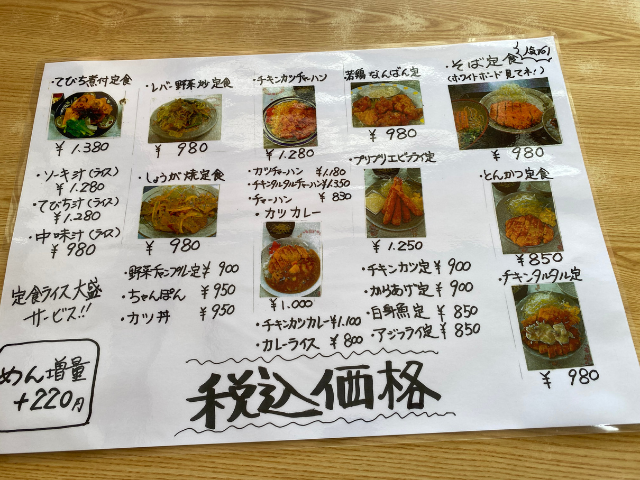 ・てびち煮付定食
¥1.380
・ソーキ汁(ライス)
¥1.280
・てびち汁(ライス)
¥1.280
・中味汁(ライス)
¥980
定食ライス大盛
サービス!!
めん増量
+220円
・レバー野菜炒定食
¥980
・しょうが焼定食
¥980
・野菜チャンプル定¥900
・ちゃんぽん ¥950
・カツ丼 ¥950
・チキンカツチャーハン
¥1.280
・カツチャーハン ¥1.180
・チキンタルタルチャーハン¥1.350
・チャーハン ¥830
・カツカレー
¥1.000
・チキンカツカレー¥1.100
・カレーライス ¥800
若鶏なんばん定食
¥980
・プリプリエビフライ定
¥1.250
・チキンカツ定 ¥900
・からあげ定 ¥900
・白身魚定 ¥850
・アジフライ定 ¥850
・そば定食
(ホワイトボード見てネ!)
¥980
・とんかつ定食
¥850
・チキンタルタル定
¥980
税込価格